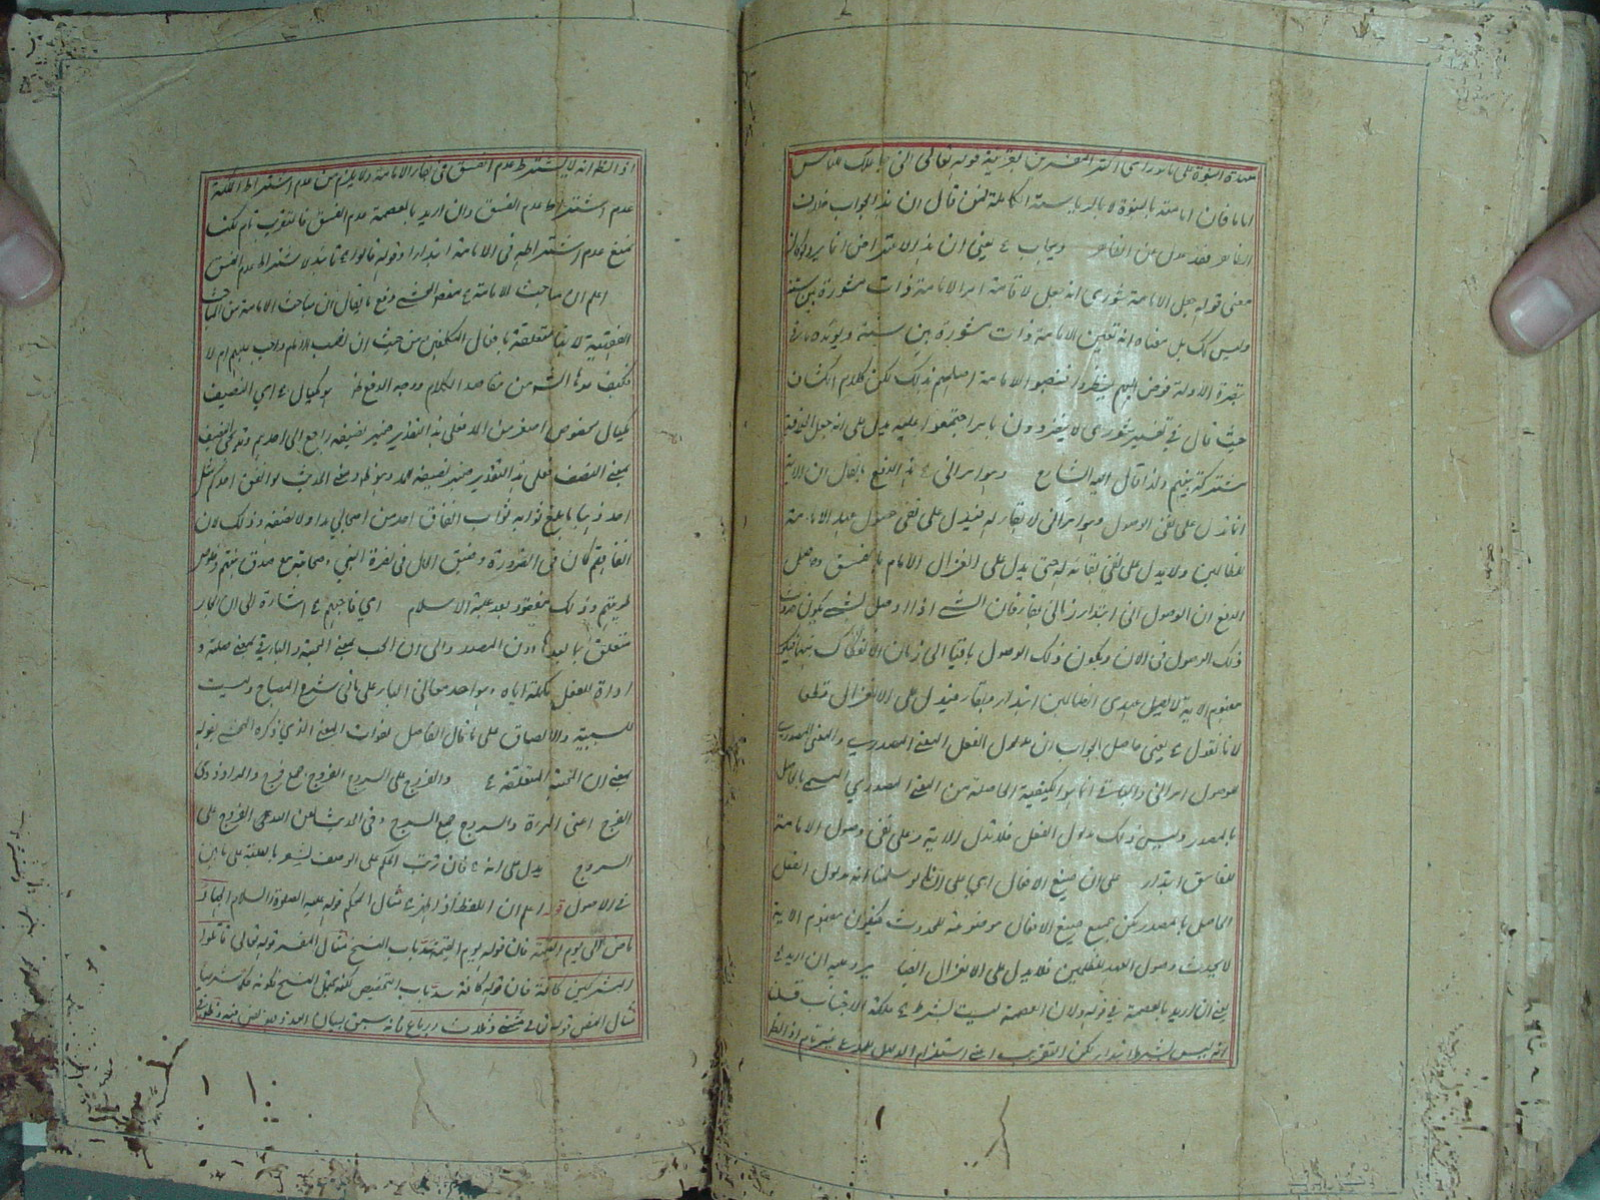 بعهدة النبوة على ما هو رأى اكثر المفسرين بقرينة قوله تعالى انى جاعلك للناس
اماما فان امامته بالنبوة لا بالرياسة الكاملة فمن قال ان هذا الجواب خلاف
الظاهر فقد عدل عن الظاهر ويجاب ع يعنى ان هذا الاعتراض انما يرد لو كان
معنى قوله جعل الامامة شورى انه جعل لاقامة امر الامامة ذات مشورة بين ستة
وليس كك بل معناه انه تعيين الامامة ذات مشورة بين ستة ويؤيده ما فى
الاولة فوض اليهم لينظروا فينصبوا الامامة اصلحهم لذلك لكن كلام الكشاف
حيث قال فى تفسير شورى لا ينفردون بامر حتى يجتمعوا عليه يدل على انه جعل الخلافة
مشتركة بينهم ولذا قال اليه الشارع وهو امر آنى ع هذا لدفع ما يقال ان الآية
انما تدل على نفى الوصول وهو امر آنى لا بقاء له فيدل على نفى حصول عهد الامامة
للظالمين ولا يدل على نفى بقائه له حتى يدل على انعزال الامام بالفسق وحاصل
الدفع ان الوصول آنى ابتداء زمانى بقاء فان الشئ اذا وصل لشئ يكون حدوث
ذلك الوصول فى الآن ويكون ذلك الوصول باقيا الى زمان الانفكاك بينهما فيكون
مفهوم الآية لا يصل عهدى الظالمين ابتداء وبقاء فيدل على الانعزال قطعا
لانا نقول ع يعنى حاصل الجواب ان مدلول الفعل المعنى المصدرى والمعنى المصدرى
للوصول امر آنى والباقى انما هو الكيفية الحاصلة من المعنى المصدرى المسمى بالحاصل
بالمصدر وليس ذلك مدلول الفعل فلا تدل الآية الا على نفى وصول الامامة
للفاسق ابتداء على ان صيغ الافعال اى على انا لو سلمنا انه مدلول الفعل
الحاصل بالمصدر لكن جميع صيغ الافعال موضوعة للحدوث فيكون مفهوم الآية
لا يحدث وصول العهد للظالمين فلا يدل على الانعزال ايضا يرد عليه ان اريد ع
يعنى ان اريد بالعصمة فى قوله ولان العصمة ليست بشرط ع ملكة الاجتناب قلت
انه ليس بشرط ابتداء لكن التقريب اعنى استلزام الدليل للمدعى ليس بتام اذ الظ
اذ الظ انه لا يشترط عدم الفسق فى بقاء الامامة ولا يلزم من عدم اشتراط الملكة
عدم اشتراط عدم الفسق وان اريد بالعصمة عدم الفسق فالتقريب تام لكن
نمنع عدم اشتراطه فى الامامة ابتداء وقوله قالوا ع تائيد لاشتراط عدم الفسق
اعلم ان مباحث الامامة ع مقصود المحشى دفع ما يقال ان مباحث الامامة من المباحث
الفقهية لانها متعلقة بافعال المكلفين من حيث ان نصب الامام واجب عليهم ام لا
فكيف عدها الشه من مقاصد الكلام ووجه الدفع ظ هو كيال ع اى النصيف
مكيال مخصوص اصغر من المد فعلى هذا التقدير ضمير نصيفه راجع الى احدهم وقد يجئ النصيف
بمعنى النصف فعلى هذا التقدير ضمير نصيفه للمد وهو ظ ومعنى الحديث لو انفق احدكم مثل
احد ذهبا ما بلغ ثوابه ثواب انفاق احد من اصحابى مدا ولا نصفه وذلك لان
انفاقهم كان فى الضرورة وضيق الحال فى نصرة النبى وحمايته مع صدق نيتهم وخلوص
طويتهم وذلك مفقود بعد غلبة الاسلام اى فاحبهم ع اشارة الى ان الجار
متعلق بما بعدها دون المصدر والى ان الحب بمعنى المحبة والباء فى بحبى صلة و
اداة للفعل مكملة اياه وهو احد معانى الباء على ما فى شرح المصباح وليست
للسببية والالصاق على ما قال الفاضل لفوات المعنى الذى ذكره المحشى بقوله
بمعنى ان المحبة المتعلقة ع والفروج على السروج الفروج جمع فرج والمراد ذوى
الفرج اعنى المرأة والسروج جمع السرج وفى الحديث لعن الله الفروج على
السروج يدل على انه ع فان رتب الحكم على الوصف يشعر بالعلية على ما بين
فى الاصول قوله اعلم ان اللفظ اذا ظهر ع مثال المحكم قوله عليه الصلوة والسلام الجهاد
ماض الى يوم القيمة فان قوله يوم القيمة سد باب النسخ مثال المفسر قوله تعالى قاتلوا
المشركين كافة فان قوله كافة سد باب التخصيص لكنه يحتمل النسخ لكونه حكما شرعيا
مثال النص قوله تعالى مثنى وثلاث ورباع فانه سيق لبيان العدد فهو نص فيه